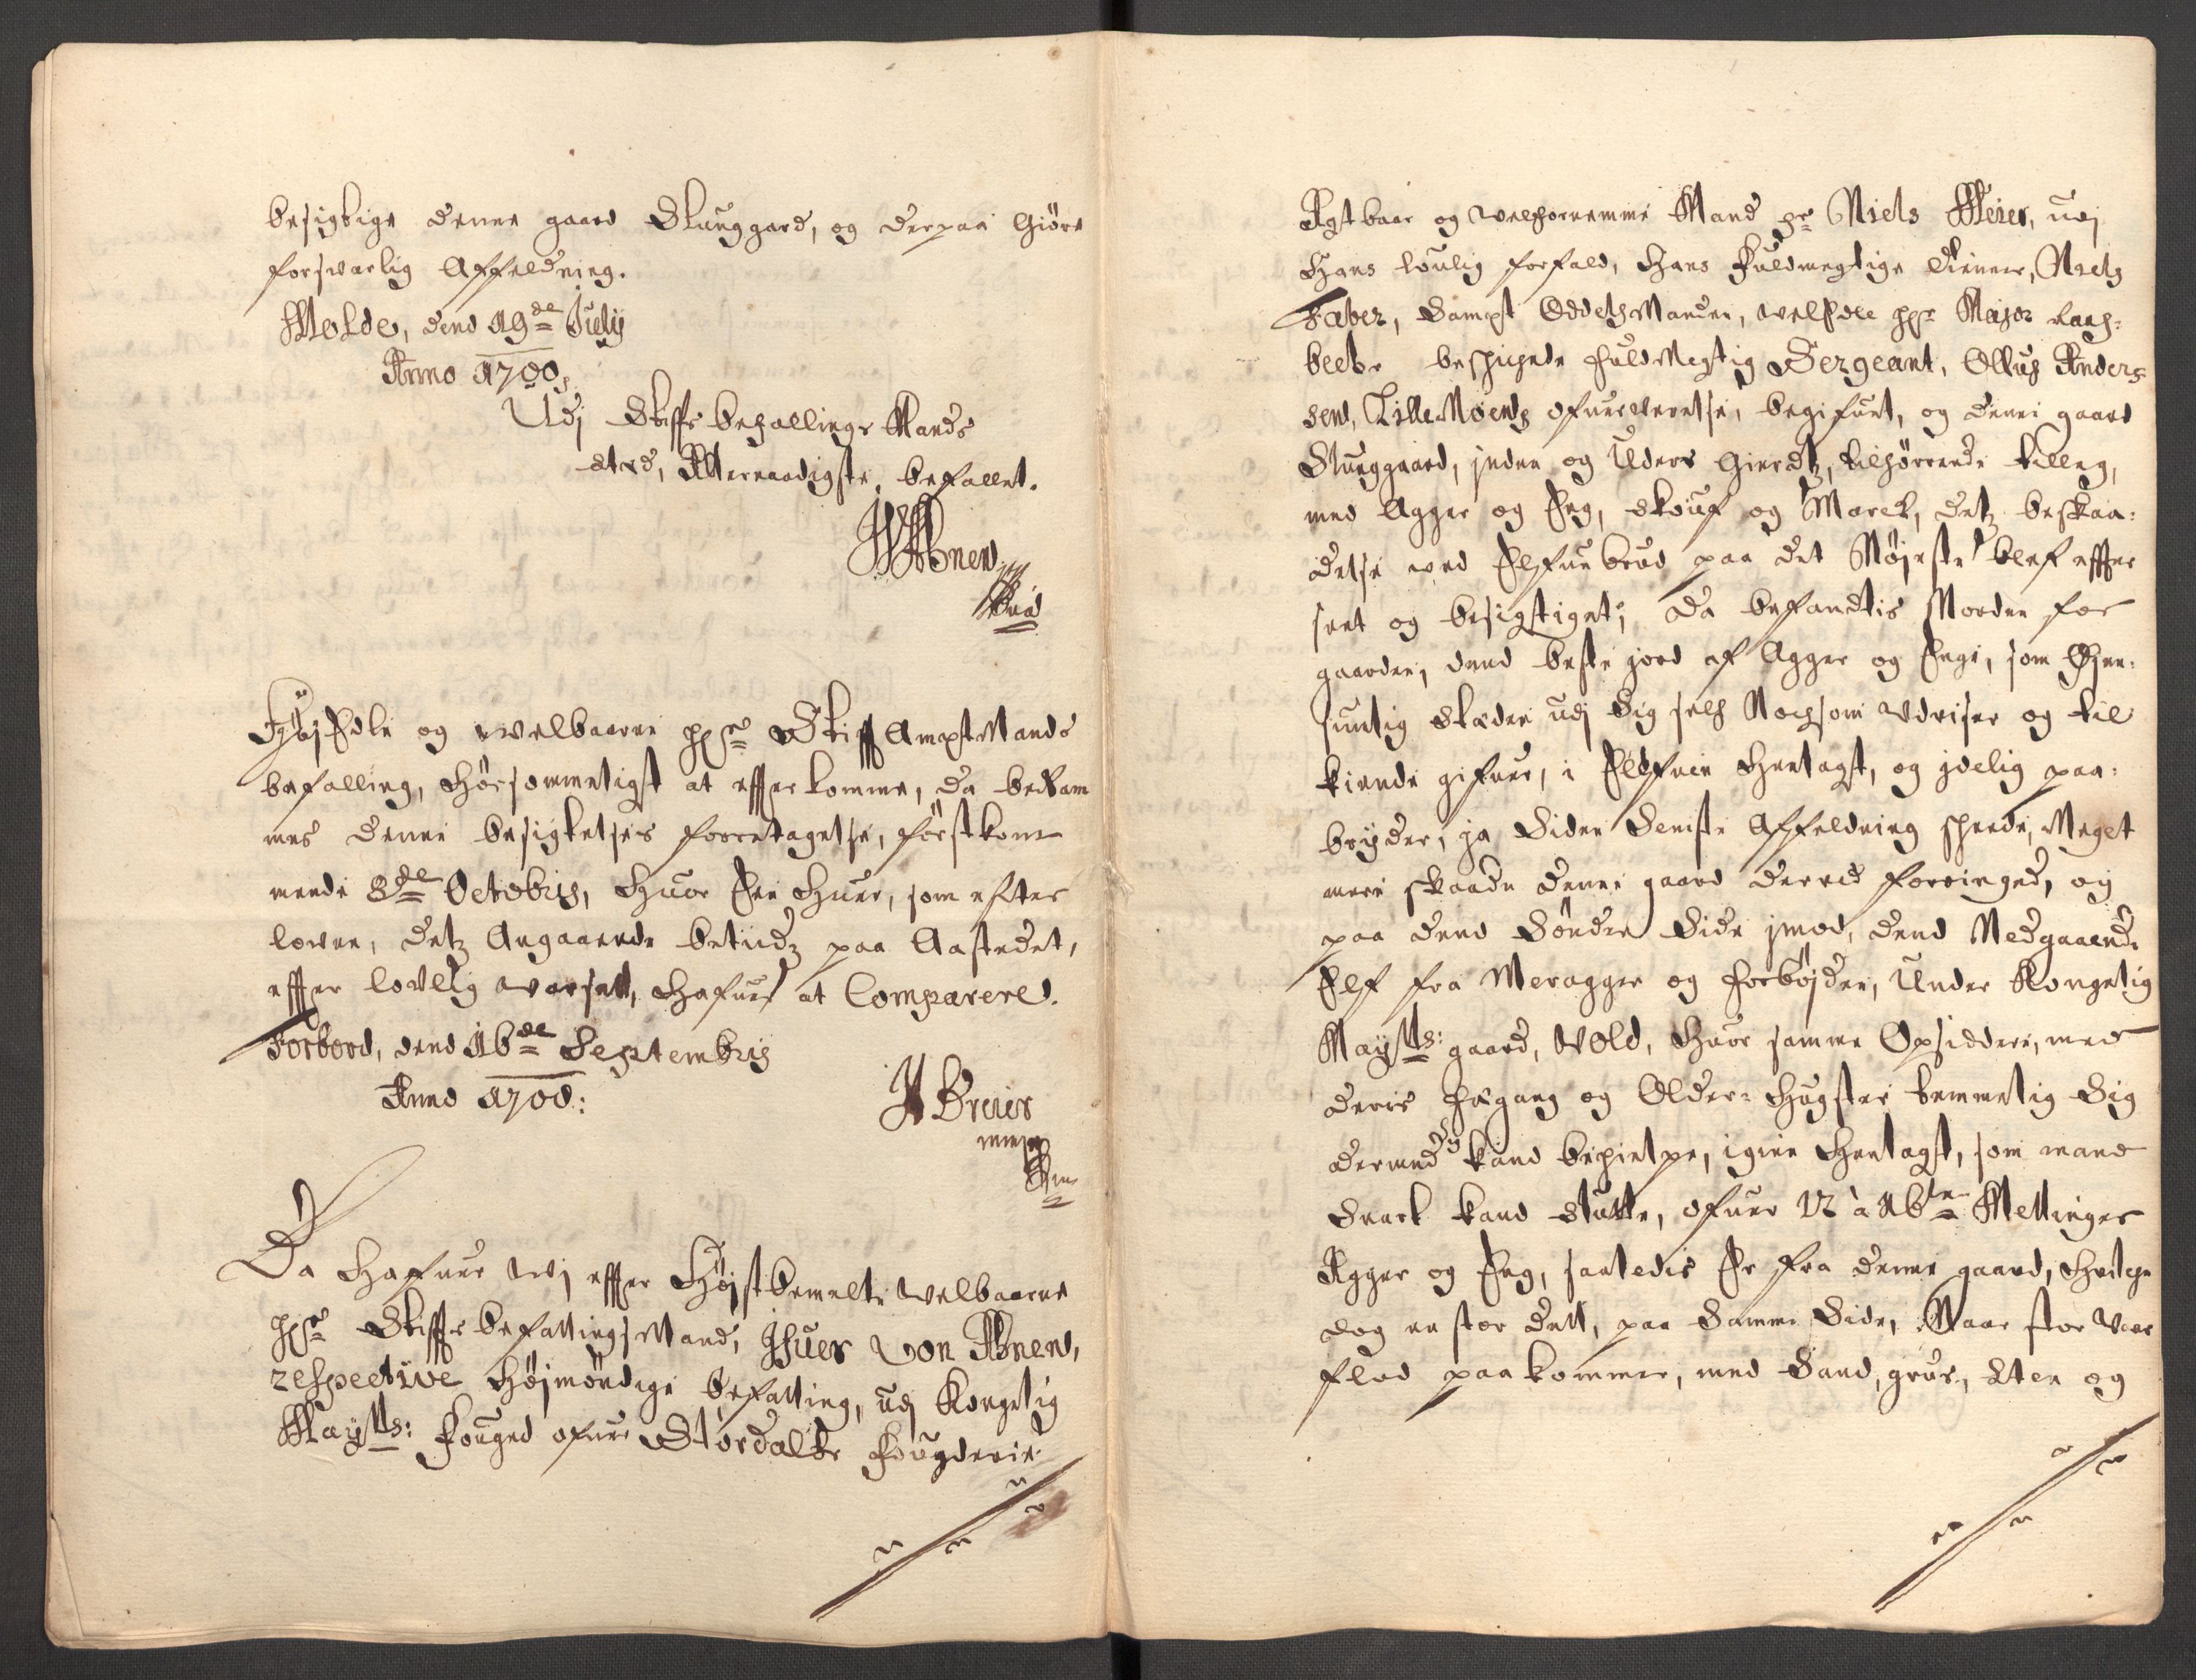 besigtige denne gaard Skunggard, og derpaa Giøre
forsvarlig Affeldning.
Molde, dend 19de Julij
Anno 1700,
Udj Stiffts befallings Mands
sted, Allernaadigste, befallet.
HMAbnen
Høyædle og welbaarne hr Stifft Ampt Mands
befalling, hørsommeligst at effterkomme, da bekam
mes denne besigtelses forretagelse, førstkom
mende 8de Octobris, huor Een huer, som efter
lowen, detz Angaaende betiudz paa Aastedet,
effter lovlig warsell, hafuer at Comparere.
Forbord, dend 16de Septembris
Anno 1700:
Breier
Da Hafuer Wj effter Høystbemelte welbaarne
hr Stiffts befallings Mand, Ifuer von Ahnen,
respective høymøndige befalling, udj Kongelig
Maytts: fouged ofuer Størdalls fougderie
Agtbaar og welfornemme Mand hr Niels Meier, udj
Hans louilig forfald, hans fuldmegtige tienner, Niels
Faber, Sampt OddelsManden, welEdle hr Major
beskichede fuldMegtig Sergeant, Ollus Anders
sen, Lille Moens ofuerverelse, begifuet, og denne gaard
Skunggaard, inden og Uders Gierdtz, tilhørrende tilleg,
med Agger og Eng, skouf og Marck, detz beskaa
delse wed Elfuebrud paa det Nøjeste blef effter
seet og besigtiget; Da befandtis Norden for
gaarden, dend beste jord af Agger og Enge, som Øyen
siunlig skaden udj Sig self Nochsom Udviser og til
kiende gifuer, i Eldfuen henlagt, og jdelig paa
bryder, ja Siden Seniste Affeldning scheede, Meget
mere skaade denne gaard derved forringed, og
paa dend Søndre Side jmod, dend Nedgaaende
Elf fra Meragger og forbøjden, Under Kongelig
Maytts: gaard, Vold, huor samme Opsiddere, med
deris fægang og Older: hugster temmelig Sig
dermed ey kand behielpe, igien henlagt, som mand
Snart kand slutte, ofuer 12 à 16ten Mellinger
Agger og Eng, saaledis Er fra denne gaard,
dog en stor dell, paa Samme Side, Naar stor Vaar
flod paakommer, med Sand, grus, Sten og